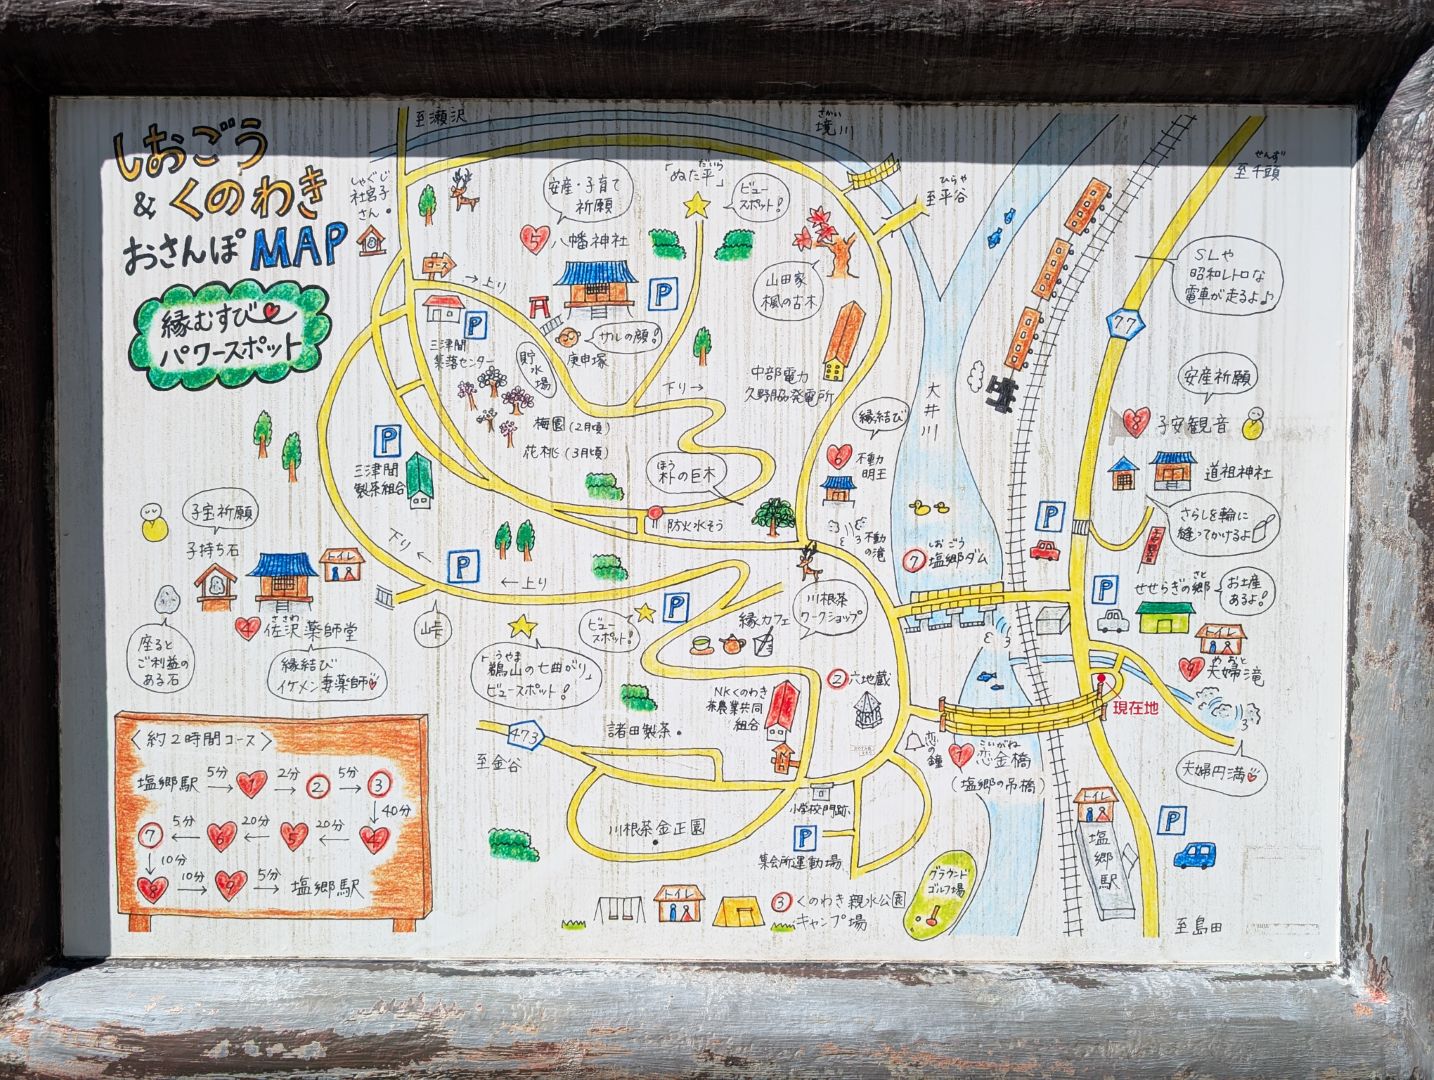 しおごう
& くのわき
おさんぽMAP
縁むすび
パワースポット
至瀬沢
しゃぐじ
社宮子
さん
安産・子育て
祈願
5 八幡神社
→上り
P
P
三津間
集落センター
貯水場
サルの顔!
庚申塚
梅園(2月頃)
花桃(3月頃)
だいら
「ぬた平」
ビュー
スポット!
さかい
境川
ひらや
至平谷
山田家
楓の古木
中部電力
久野脇発電所
下り→
縁結び
6 不動
明王
不動
の滝
ほう
朴の巨木
防火水そう
P
三津間
製茶組合
大井川
せんず
至千頭
SLや
昭和レトロな
電車が走るよ♪
77
安産祈願
8 子安観音
道祖神社
さらしを輪に
縫ってかけるよ
子宝祈願
子持ち石
トイレ
座ると
ご利益の
ある石
ささわ
4 佐沢薬師堂
縁結び
イケメン妻薬師
下り←
P
←上り
峠
ビュー
スポット!
P
うやま
「鵜山の七曲がり」
ビュースポット!
縁カフェ
川根茶
ワークショップ
しおごう
7 塩郷ダム
P
P
さと
せせらぎの郷
お土産
あるよ!
トイレ
めおと
9 夫婦滝
夫婦円満
現在地
2 六地蔵
NKくのわき
茶農業共同
組合
諸田製茶
473
至金谷
恋の鐘
こいがね
1 恋金橋
(塩郷の吊橋)
川根茶金正園
小学校門跡
P
集会所運動場
トイレ
3 くのわき親水公園
キャンプ場
グラウンド
ゴルフ場
トイレ
塩郷駅
P
至島田
〈約2時間コース〉
塩郷駅 5分→ 1 2分→ 2 5分→ 3
↓40分
7 ←5分 6 ←20分 5 ←20分 4
↓10分
8 10分→ 9 5分→ 塩郷駅